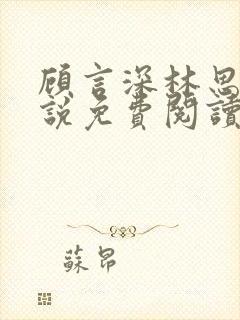 顧言深林思
說免費閱讀
蘇昂